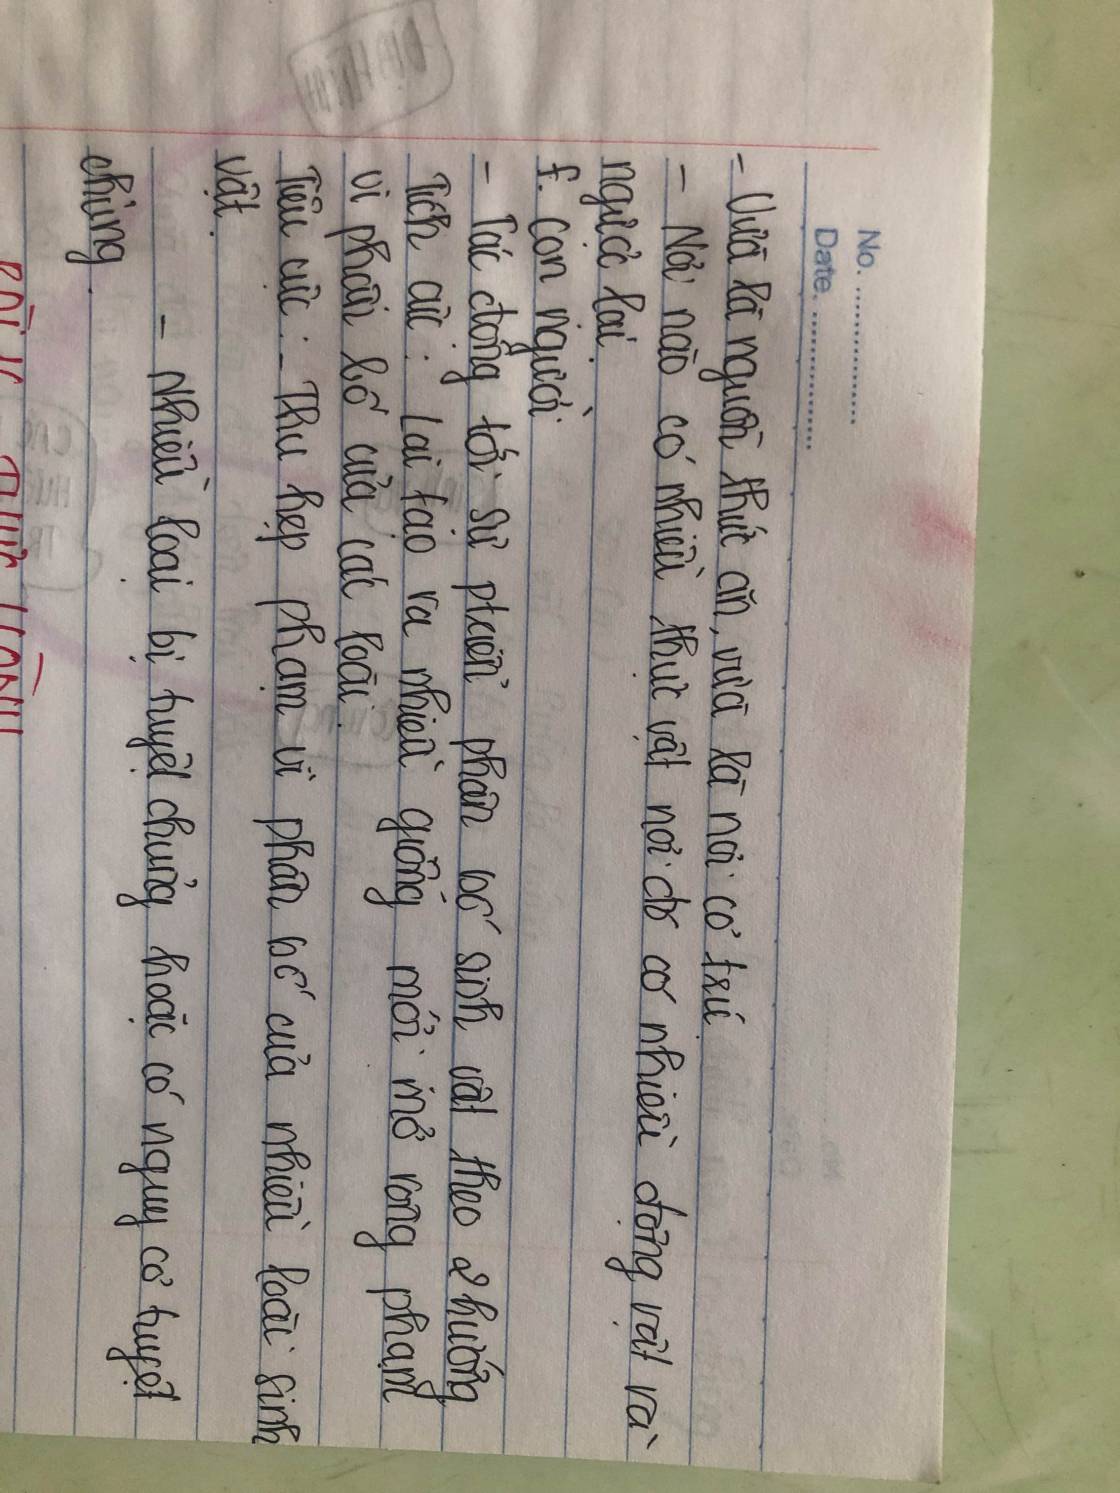 No. ....................
Date. ....................
- Vừa là nguồn thức ăn, vừa là nơi cơ trú
- Nơi nào có nhiều thực vật nơi đó có nhiều động vật và
ngược lại
f. Con người
- Tác động tới sự ptriển phân bố sinh vật theo 2 hướng
Tích cực: Lai tạo ra nhiều giống mới mở rộng phạm
vi phân bố của các loài
Tiêu cực: - Thu hẹp phạm vi phân bố của nhiều loài sinh
vật.
- Nhiều loại bị tuyệt chủng hoặc có nguy cơ tuyệt
chủng.